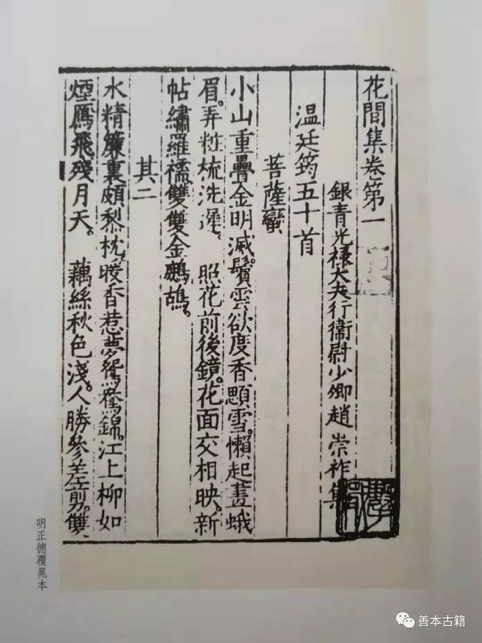 花間集卷第一
銀青光祿大夫行衞尉少卿趙崇祚集
温廷筠五十首
菩薩蠻
小山重疊金明滅。鬢雲欲度香顋雪。懶起畫蛾
眉。弄粧梳洗遲。 照花前後鏡。花面交相映。新
帖繡羅襦。雙雙金鷓鴣。
其二
水精簾裏頗黎枕。暖香惹夢鴛鴦錦。江上柳如
煙。鴈飛殘月天。 藕絲秋色淺。人勝參差剪。雙
明正德覆晁本
善本古籍